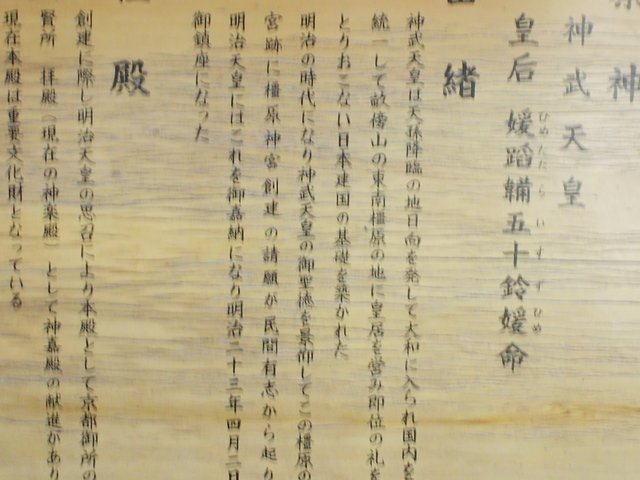 神
神武天皇
皇后 媛蹈韛五十鈴媛命
ひめたたらいすずひめ
緒
神武天皇は天孫降臨の地日向を発して大和に入られ国内を
統一して畝傍山の東南橿原の地に皇居を営み即位の礼を
とりおこない日本建国の基礎を築かれた
明治の時代になり神武天皇の御聖徳を景仰してこの橿原の
宮跡に橿原神宮創建の請願が民間有志から起り
明治天皇にはこれを御嘉納になり明治二十三年四月二日
御鎮座になった
殿
創建に際し明治天皇の思召により本殿として京都御所の
賢所 拝殿(現在の神楽殿)として神嘉殿の献進があり
現在本殿は重要文化財となっている